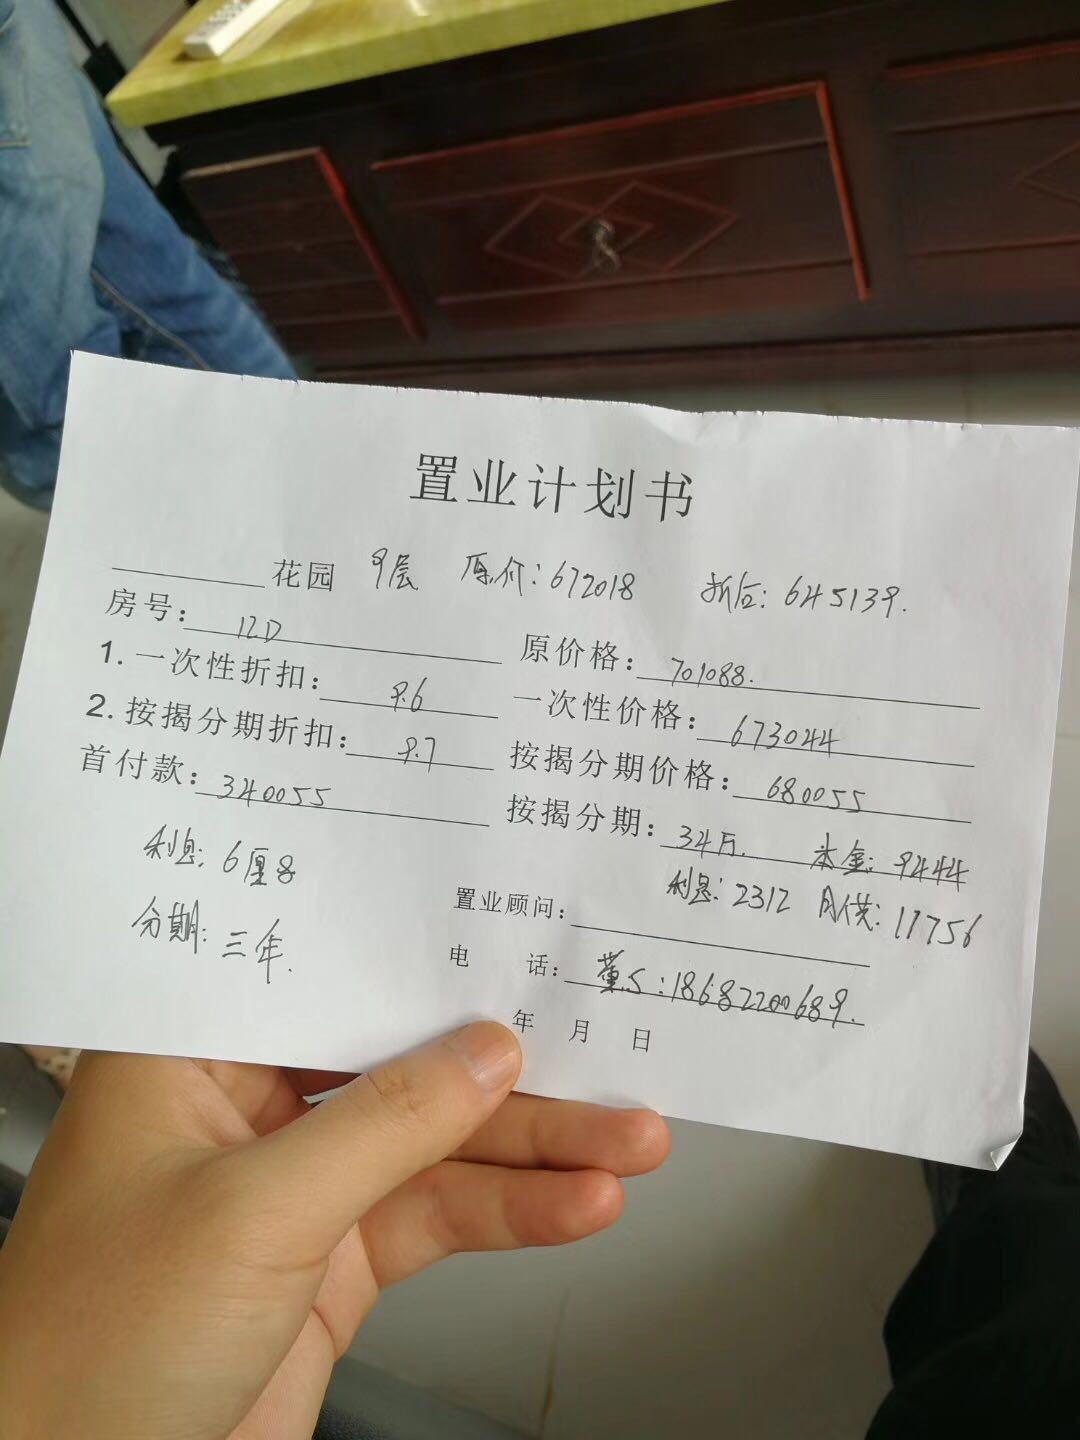 置业计划书
花园 9层 原价:672018 折后:645139.
房号: 12D 原价格: 701088.
1.一次性折扣: 9.6 一次性价格: 673044
2.按揭分期折扣: 9.7 按揭分期价格: 680055
首付款: 340055 按揭分期: 34万. 本金: 9444
利息: 6厘8 利息: 2312 月供: 11756
分期: 三年. 置业顾问:
电 话: 董S:18682200689.
年 月 日